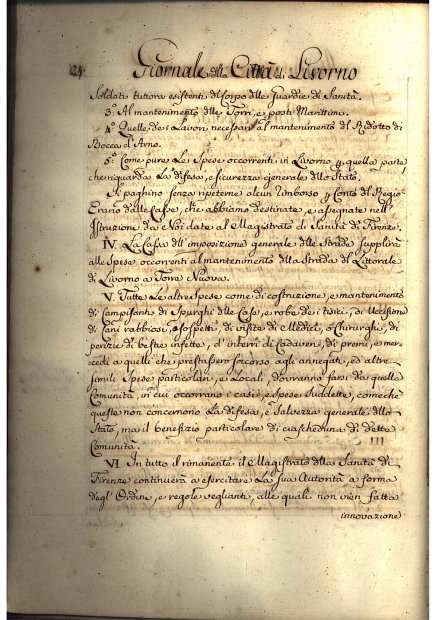 24 Giornale della Città di Livorno
Soldati tuttora esistenti del Corpo delle Guardie di Sanità.
3.° Al mantenimento delle Torri, e posti Marittimi.
4.° Quelle de i Lavori necessari al mantenimento del Ridotto di
Bocca d'Arno.
5.° Come pure Le Spese occorrenti in Livorno p. quella parte
che riguarda La difesa, e sicurezza generale dello Stato.
Si paghino senza ripeterne alcun rimborso p. Conto del Regio
Erario dalle Casse, che abbiamo destinate, e assegnate nell'
Istruzione da Noi date al Magistrato di Sanità di Firenze.
IV. La Cassa dell'imposizione generale delle Strade supplirà
alle Spese occorrenti al mantenimento della Strada del Littorale
di Livorno a Torre Nuova.
V. Tutte Le altre Spese come di costruzione, e mantenimento
di Campisanti, di Spurghi delle Case, e robe de i tisici, di Uccisione
di Cani rabbiosi, o sospetti, di visite di Medici, o Chirurghi, di
perizie di bestie infette, d'interri di Cadaveri, di premi, e mer=
cedi a quelli che prestassero soccorso agli annegati, ed altre
simili Spese particolari, e Locali, dovranno farsi da quella
Comunità, in cui occorrano i casi, e Spese Suddette, come che
queste non concernono La difesa, e Salvezza generale dello
Stato, ma il benefizio particolare di ciascheduna di dette
Comunità.
VI. In tutto il rimanente il Magistrato della Sanità di
Firenze continuerà a esercitare La sua Autorità a forma
degl'Ordini, e regole veglianti, alle quali non vien fatta
innovazione